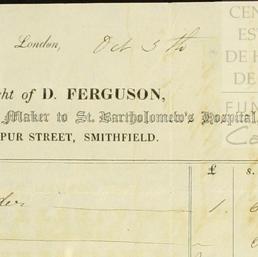 London, Oct 5th
ght of D. FERGUSON,
Maker to St. Bartholomew's Hospital
PUR STREET, SMITHFIELD.
£ s.
1
CEN
ES
DE H
DE
FUN